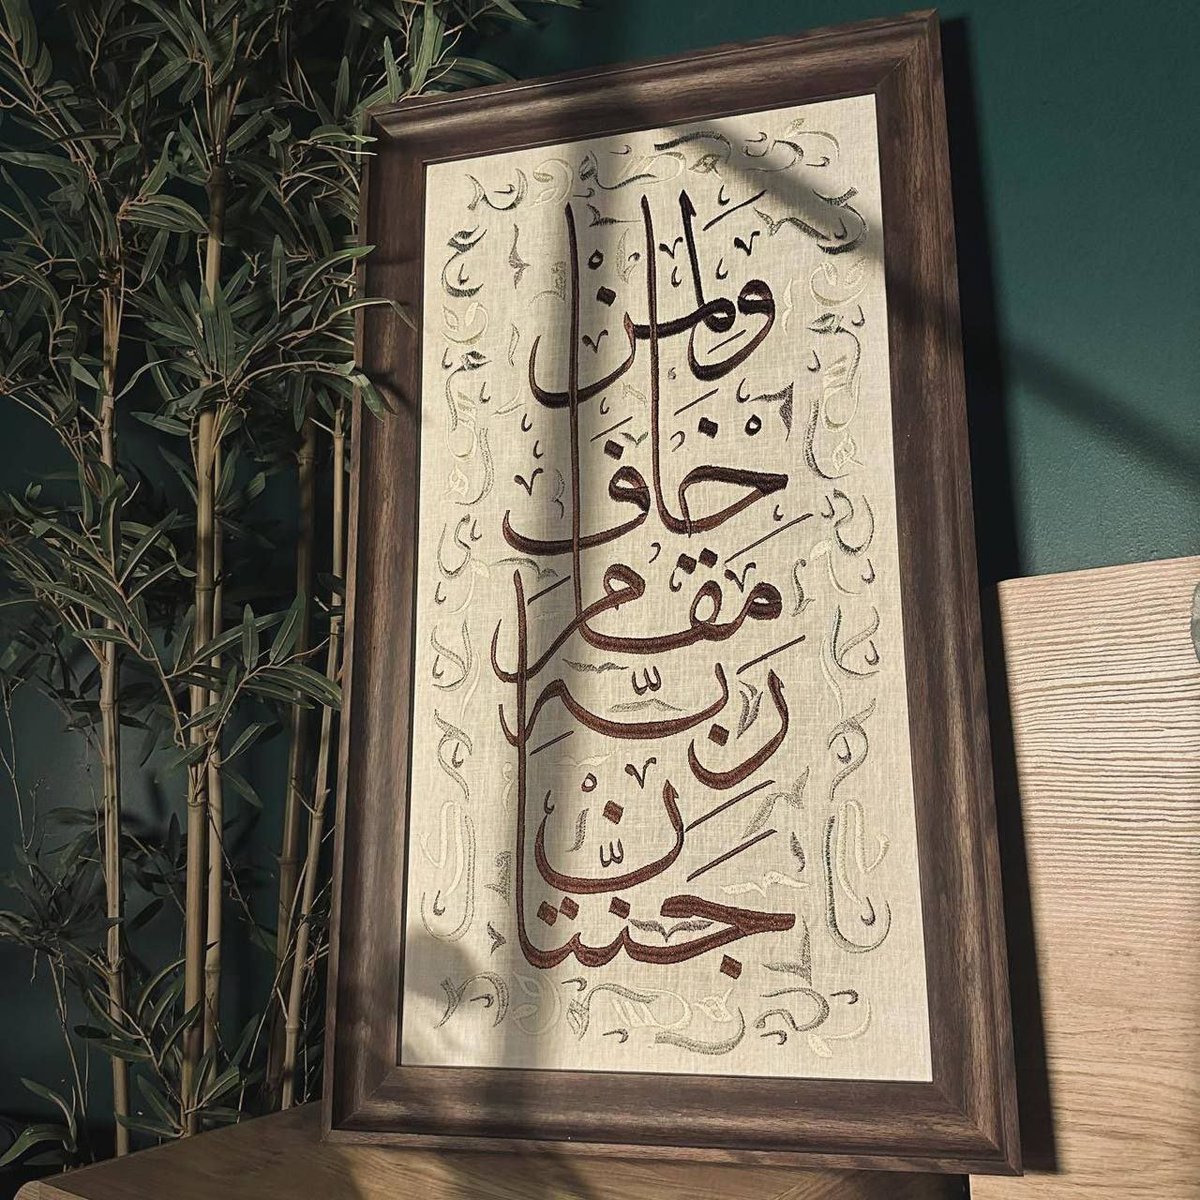 ولمن
خاف
مقام
ربه
جنتان